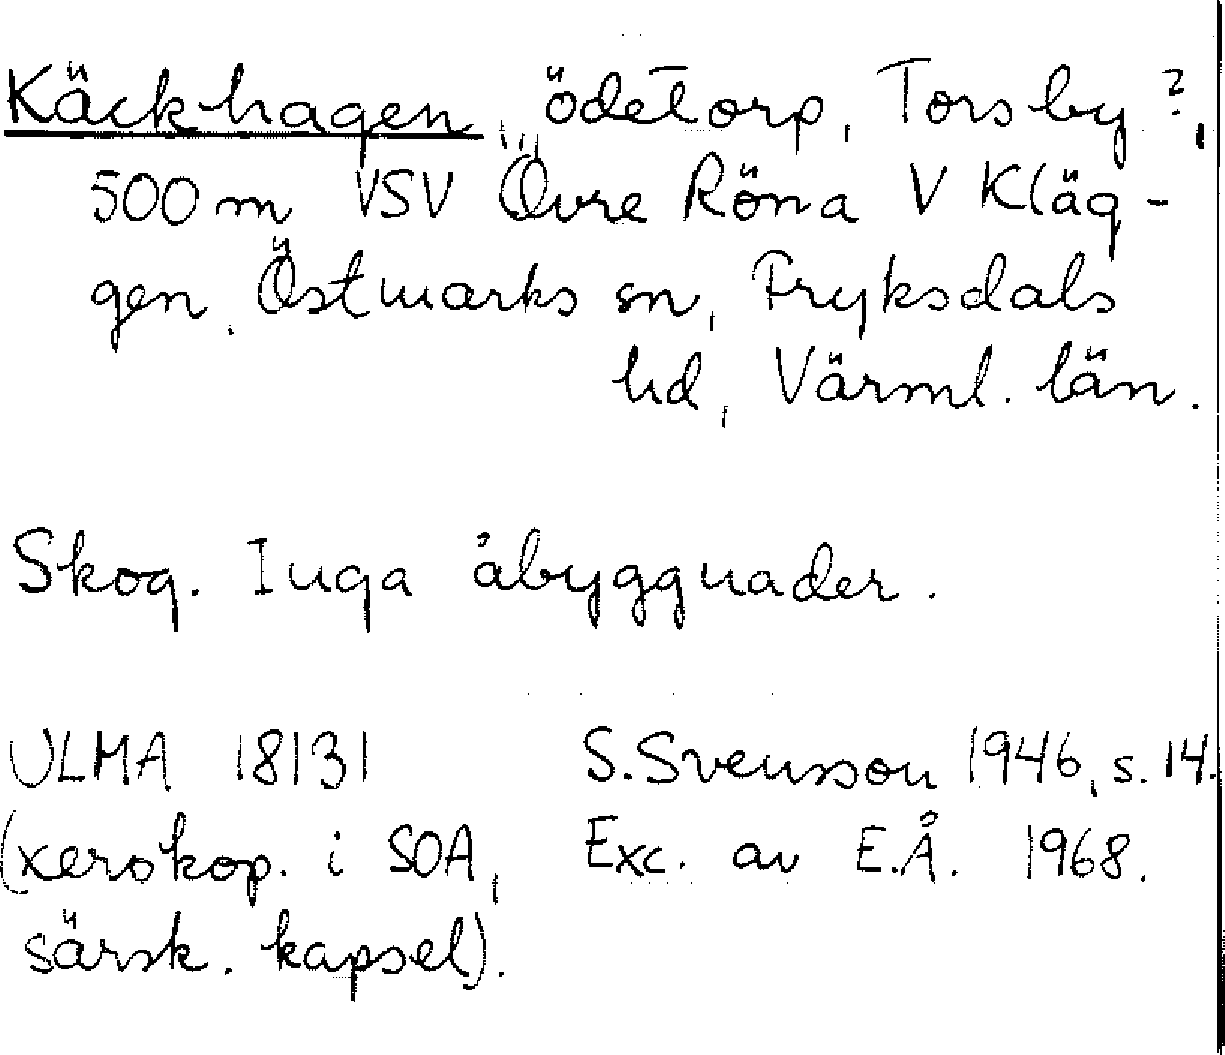 Käckhagen, ödetorp, Torsby?,
500 m VSV Övre Röna V Kläg-
gen, Östmarks sn, Fryksdals
hd, Värml. län.
Skog. Inga åbyggnader.
ULMA 18131 S. Svensson 1946, s. 14.
(xerokop. i SOA, Exc. av E.Å. 1968.
särsk. kapsel).